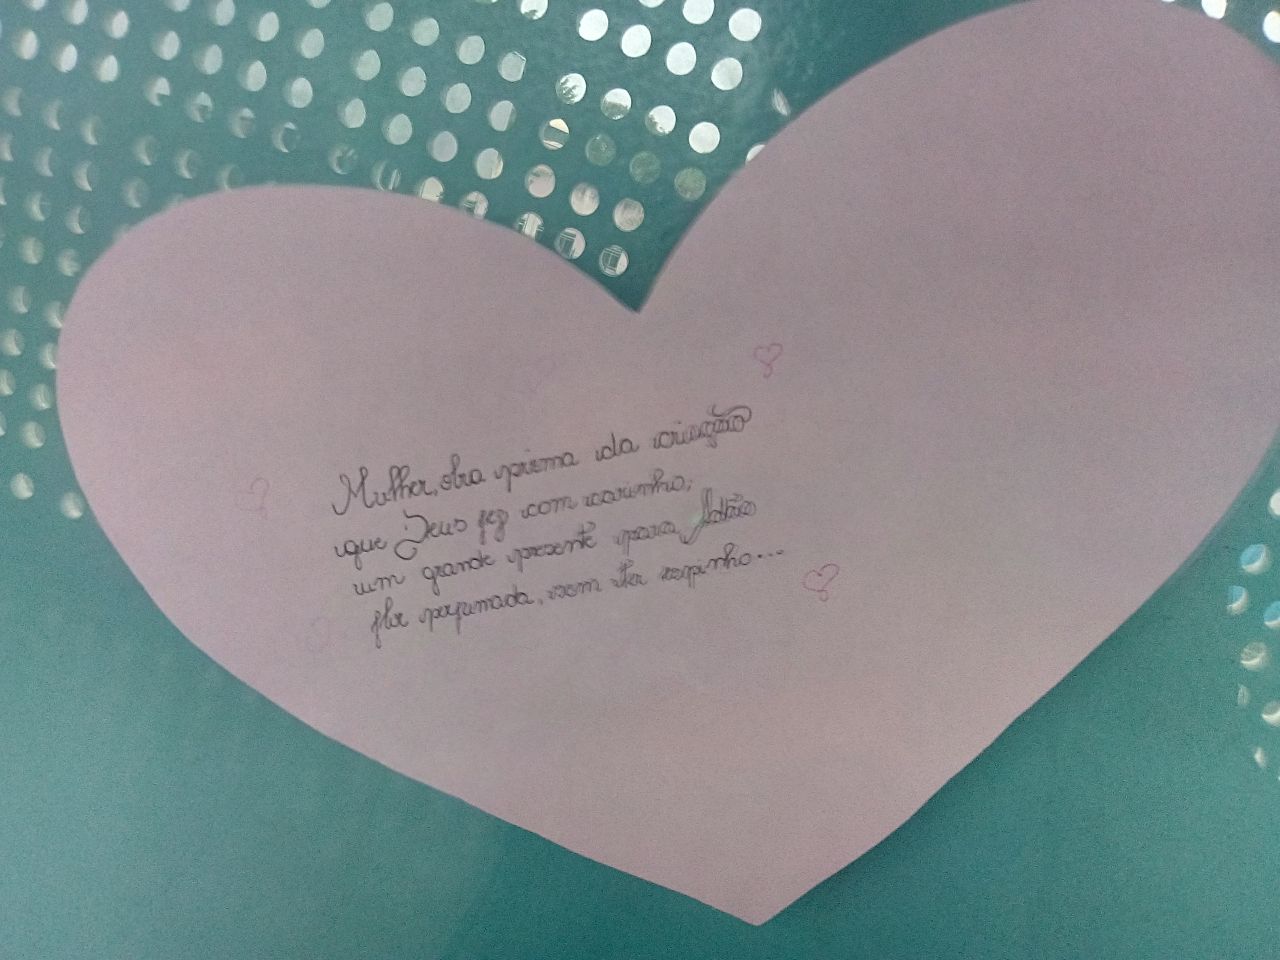 Mulher, obra prima da criação
que Deus fez com carinho;
um grande presente para Adão
flor perfumada, sem ter espinho...